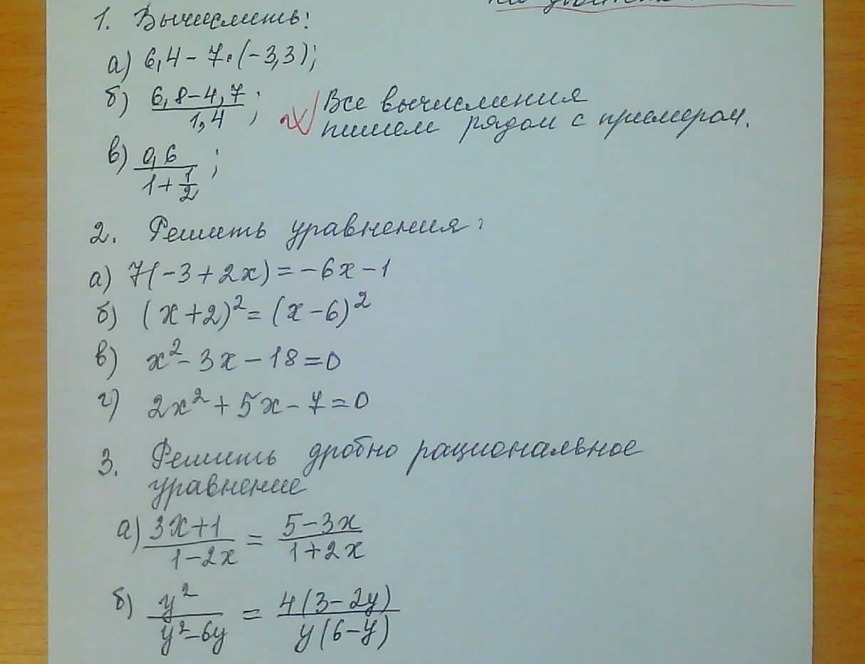 1. Вычислить:
а) 6,4 - 7·(-3,3);
б) (6,8-4,7)/1,4;
Все вычисления
пишем рядом с примером.
в) 0,6/(1+1/2);
2. Решить уравнения:
а) 7(-3+2x) = -6x-1
б) (x+2)² = (x-6)²
в) x² - 3x - 18 = 0
г) 2x² + 5x - 7 = 0
3. Решить дробно рациональное
уравнение
а) (3x+1)/(1-2x) = (5-3x)/(1+2x)
б) y²/(y²-6y) = 4(3-2y)/(y(6-y))